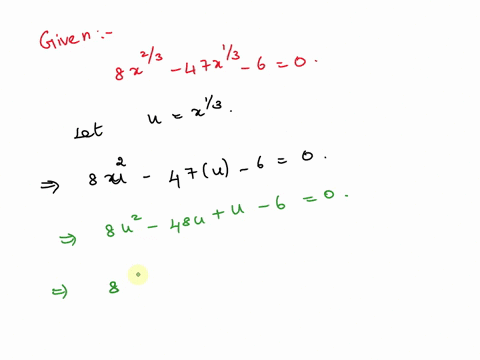 Given :-
8x^{2/3} - 47x^{1/3} - 6 = 0.
Let u = x^{1/3}.
⇒ 8u^2 - 47(u) - 6 = 0.
⇒ 8u^2 - 48u + u - 6 = 0.
⇒ 8